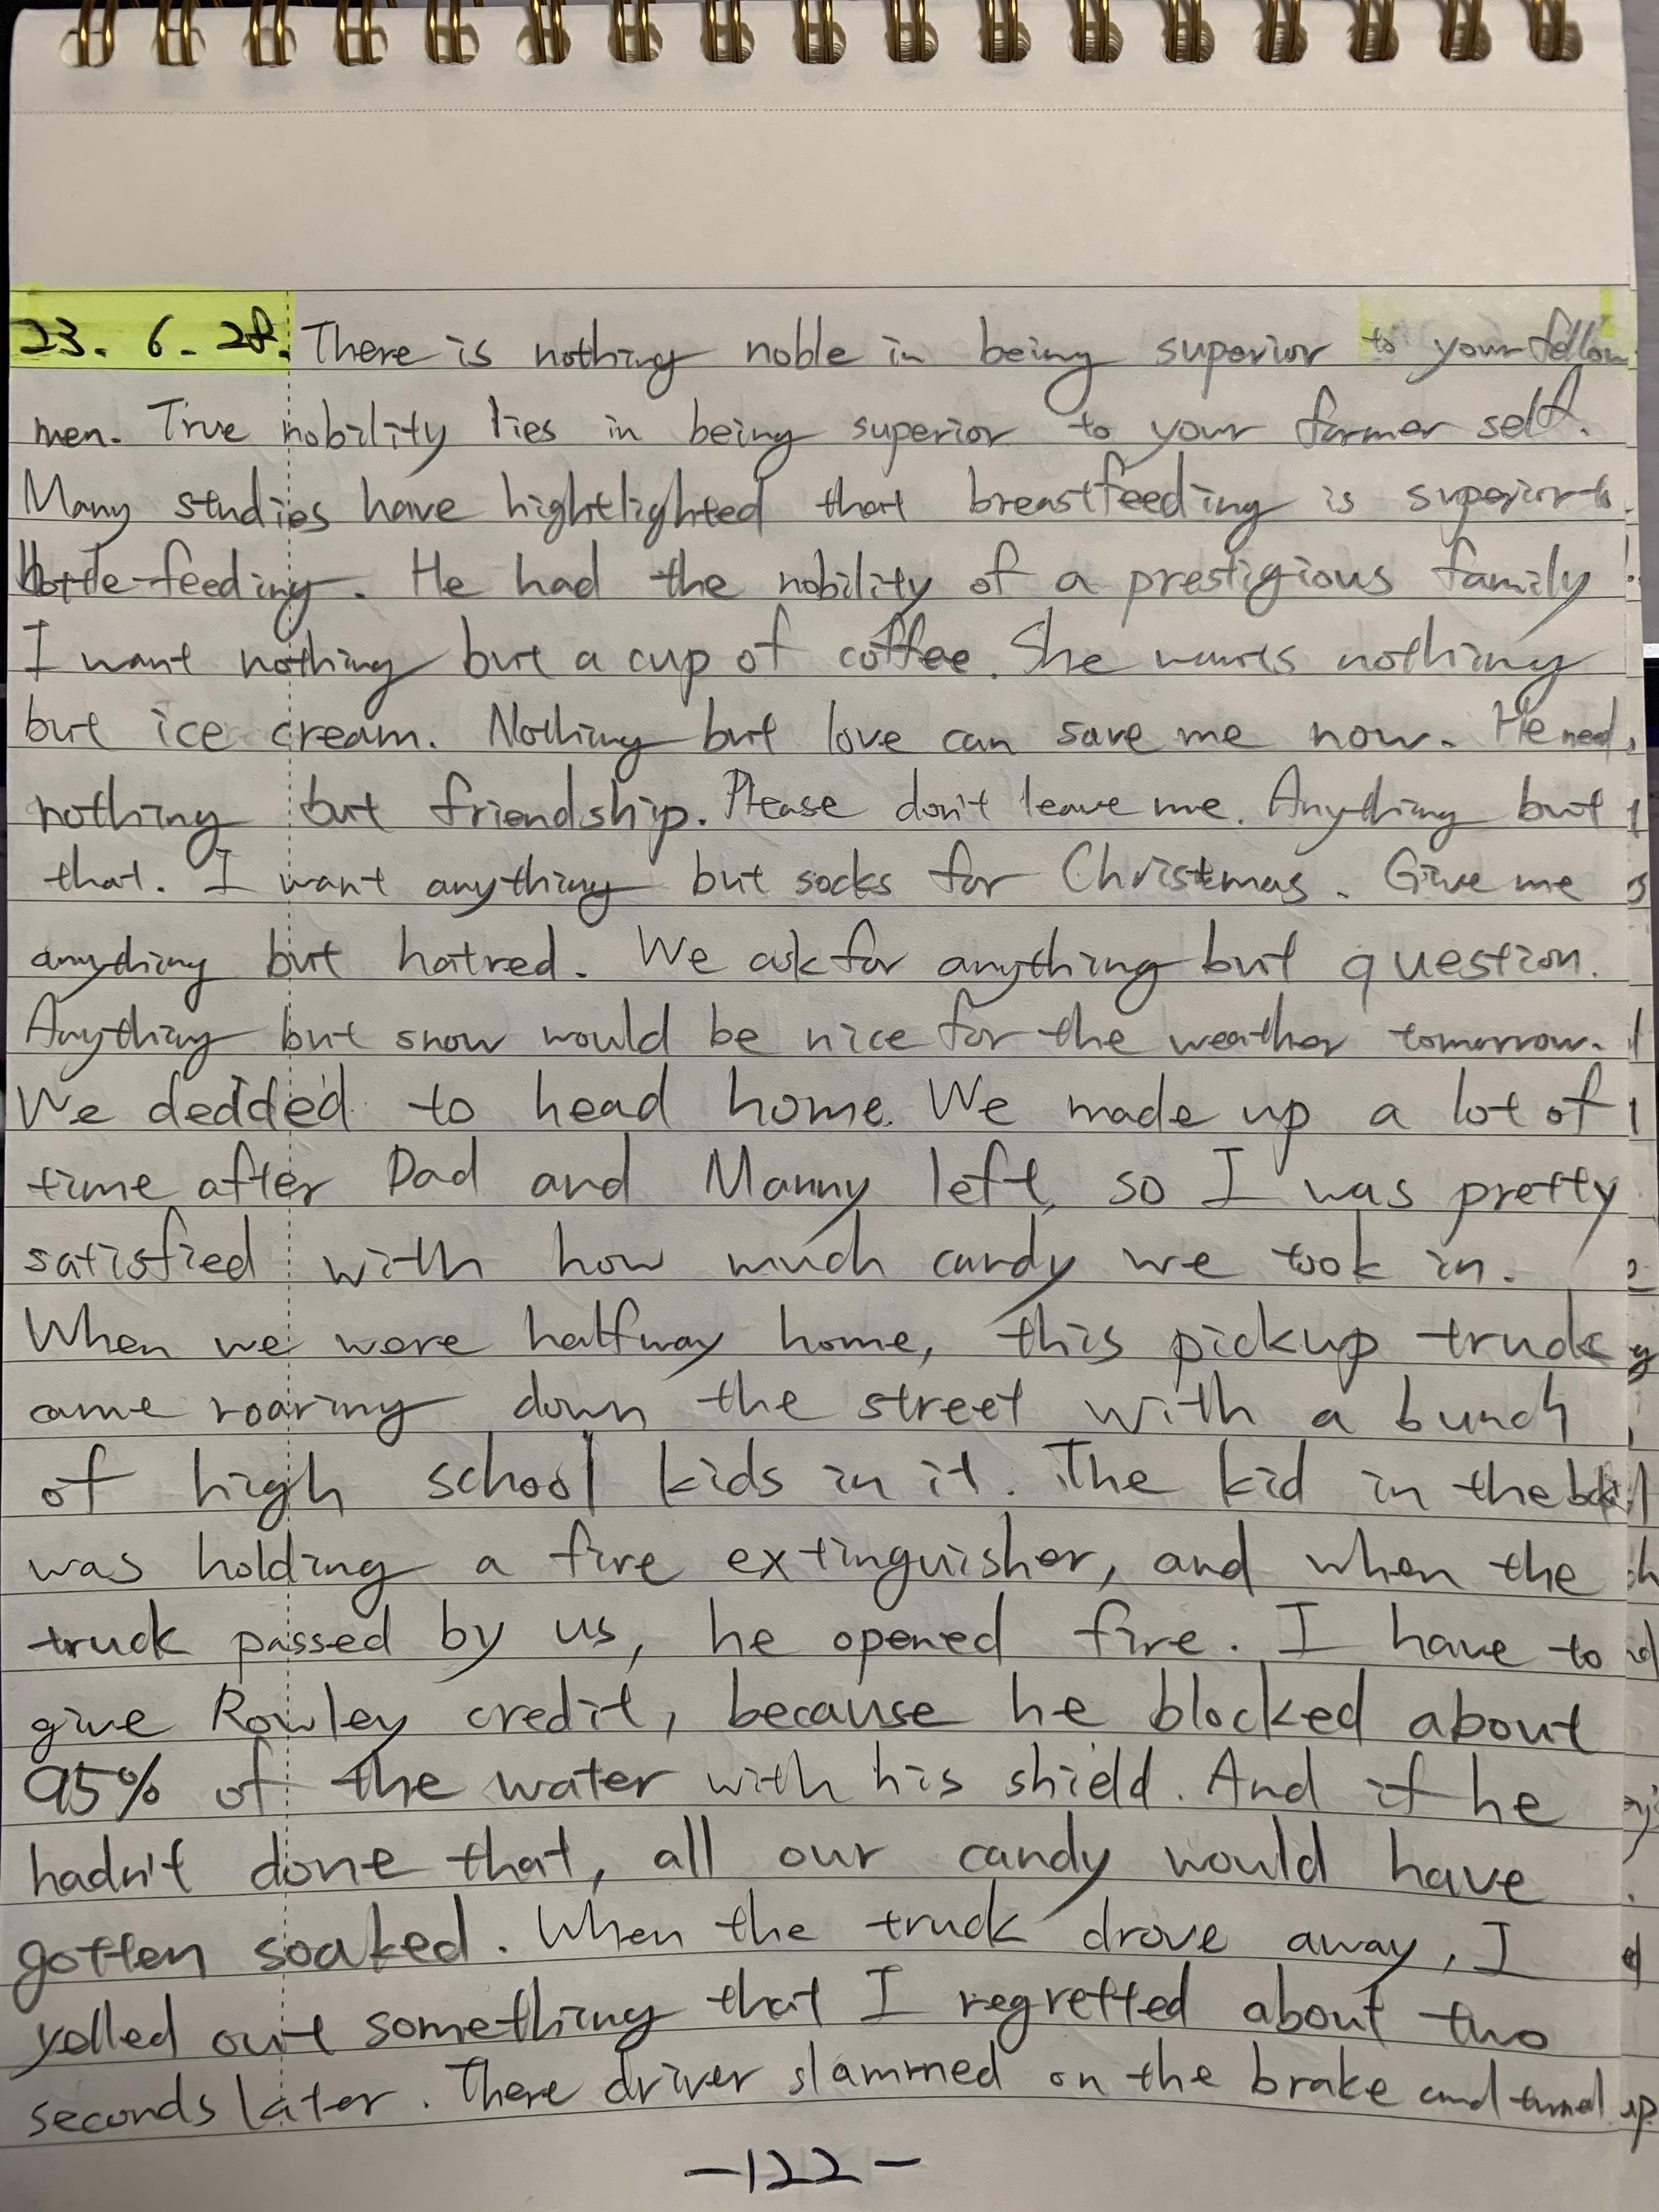 23. 6. 28. There is nothing noble in being superior to your fellow
men. True nobility lies in being superior to your former self.
Many studies have hightlighted that breastfeeding is superior to
bottle-feeding. He had the nobility of a prestigious family
I want nothing but a cup of coffee. She wants nothing
but ice cream. Nothing but love can save me now. He need
nothing but friendship. Please don't leave me. Anything but
that. I want anything but socks for Christmas. Give me
anything but hatred. We ask for anything but question.
Anything but snow would be nice for the weather tomorrow.
We dedded to head home. We made up a lot of
time after Dad and Manny left, so I was pretty
satisfied with how much candy we took in.
When we were halfway home, this pickup truck
came roaring down the street with a bunch
of high school kids in it. The kid in the back
was holding a fire extinguisher, and when the
truck passed by us, he opened fire. I have to
give Rowley credit, because he blocked about
95% of the water with his shield. And if he
hadn't done that, all our candy would have
gotten soaked. When the truck drove away, I
yelled out something that I regretted about two
seconds later. There driver slammed on the brake and turned
-122-